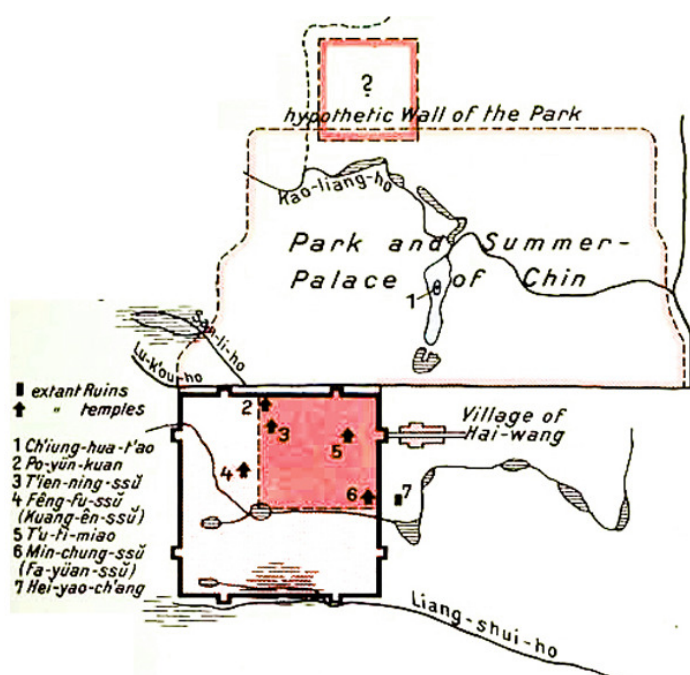 ?
hypothetic Wall of the Park
Kao-liang-ho
Park and Summer-
Palace of Chin
1
San-li-ho
Lu-k'ou-ho
extant Ruins
" temples
1 Ch'iung-hua-t'ao
2 Po-yün-kuan
3 T'ien-ning-ssŭ
4 Fêng-fu-ssŭ
(Kuang-ên-ssŭ)
5 T'u-ti-miao
6 Min-chung-ssŭ
(Fa-yüan-ssŭ)
7 Hei-yao-ch'ang
2
3
4
5
6
7
Village of
Hai-wang
Liang-shui-ho